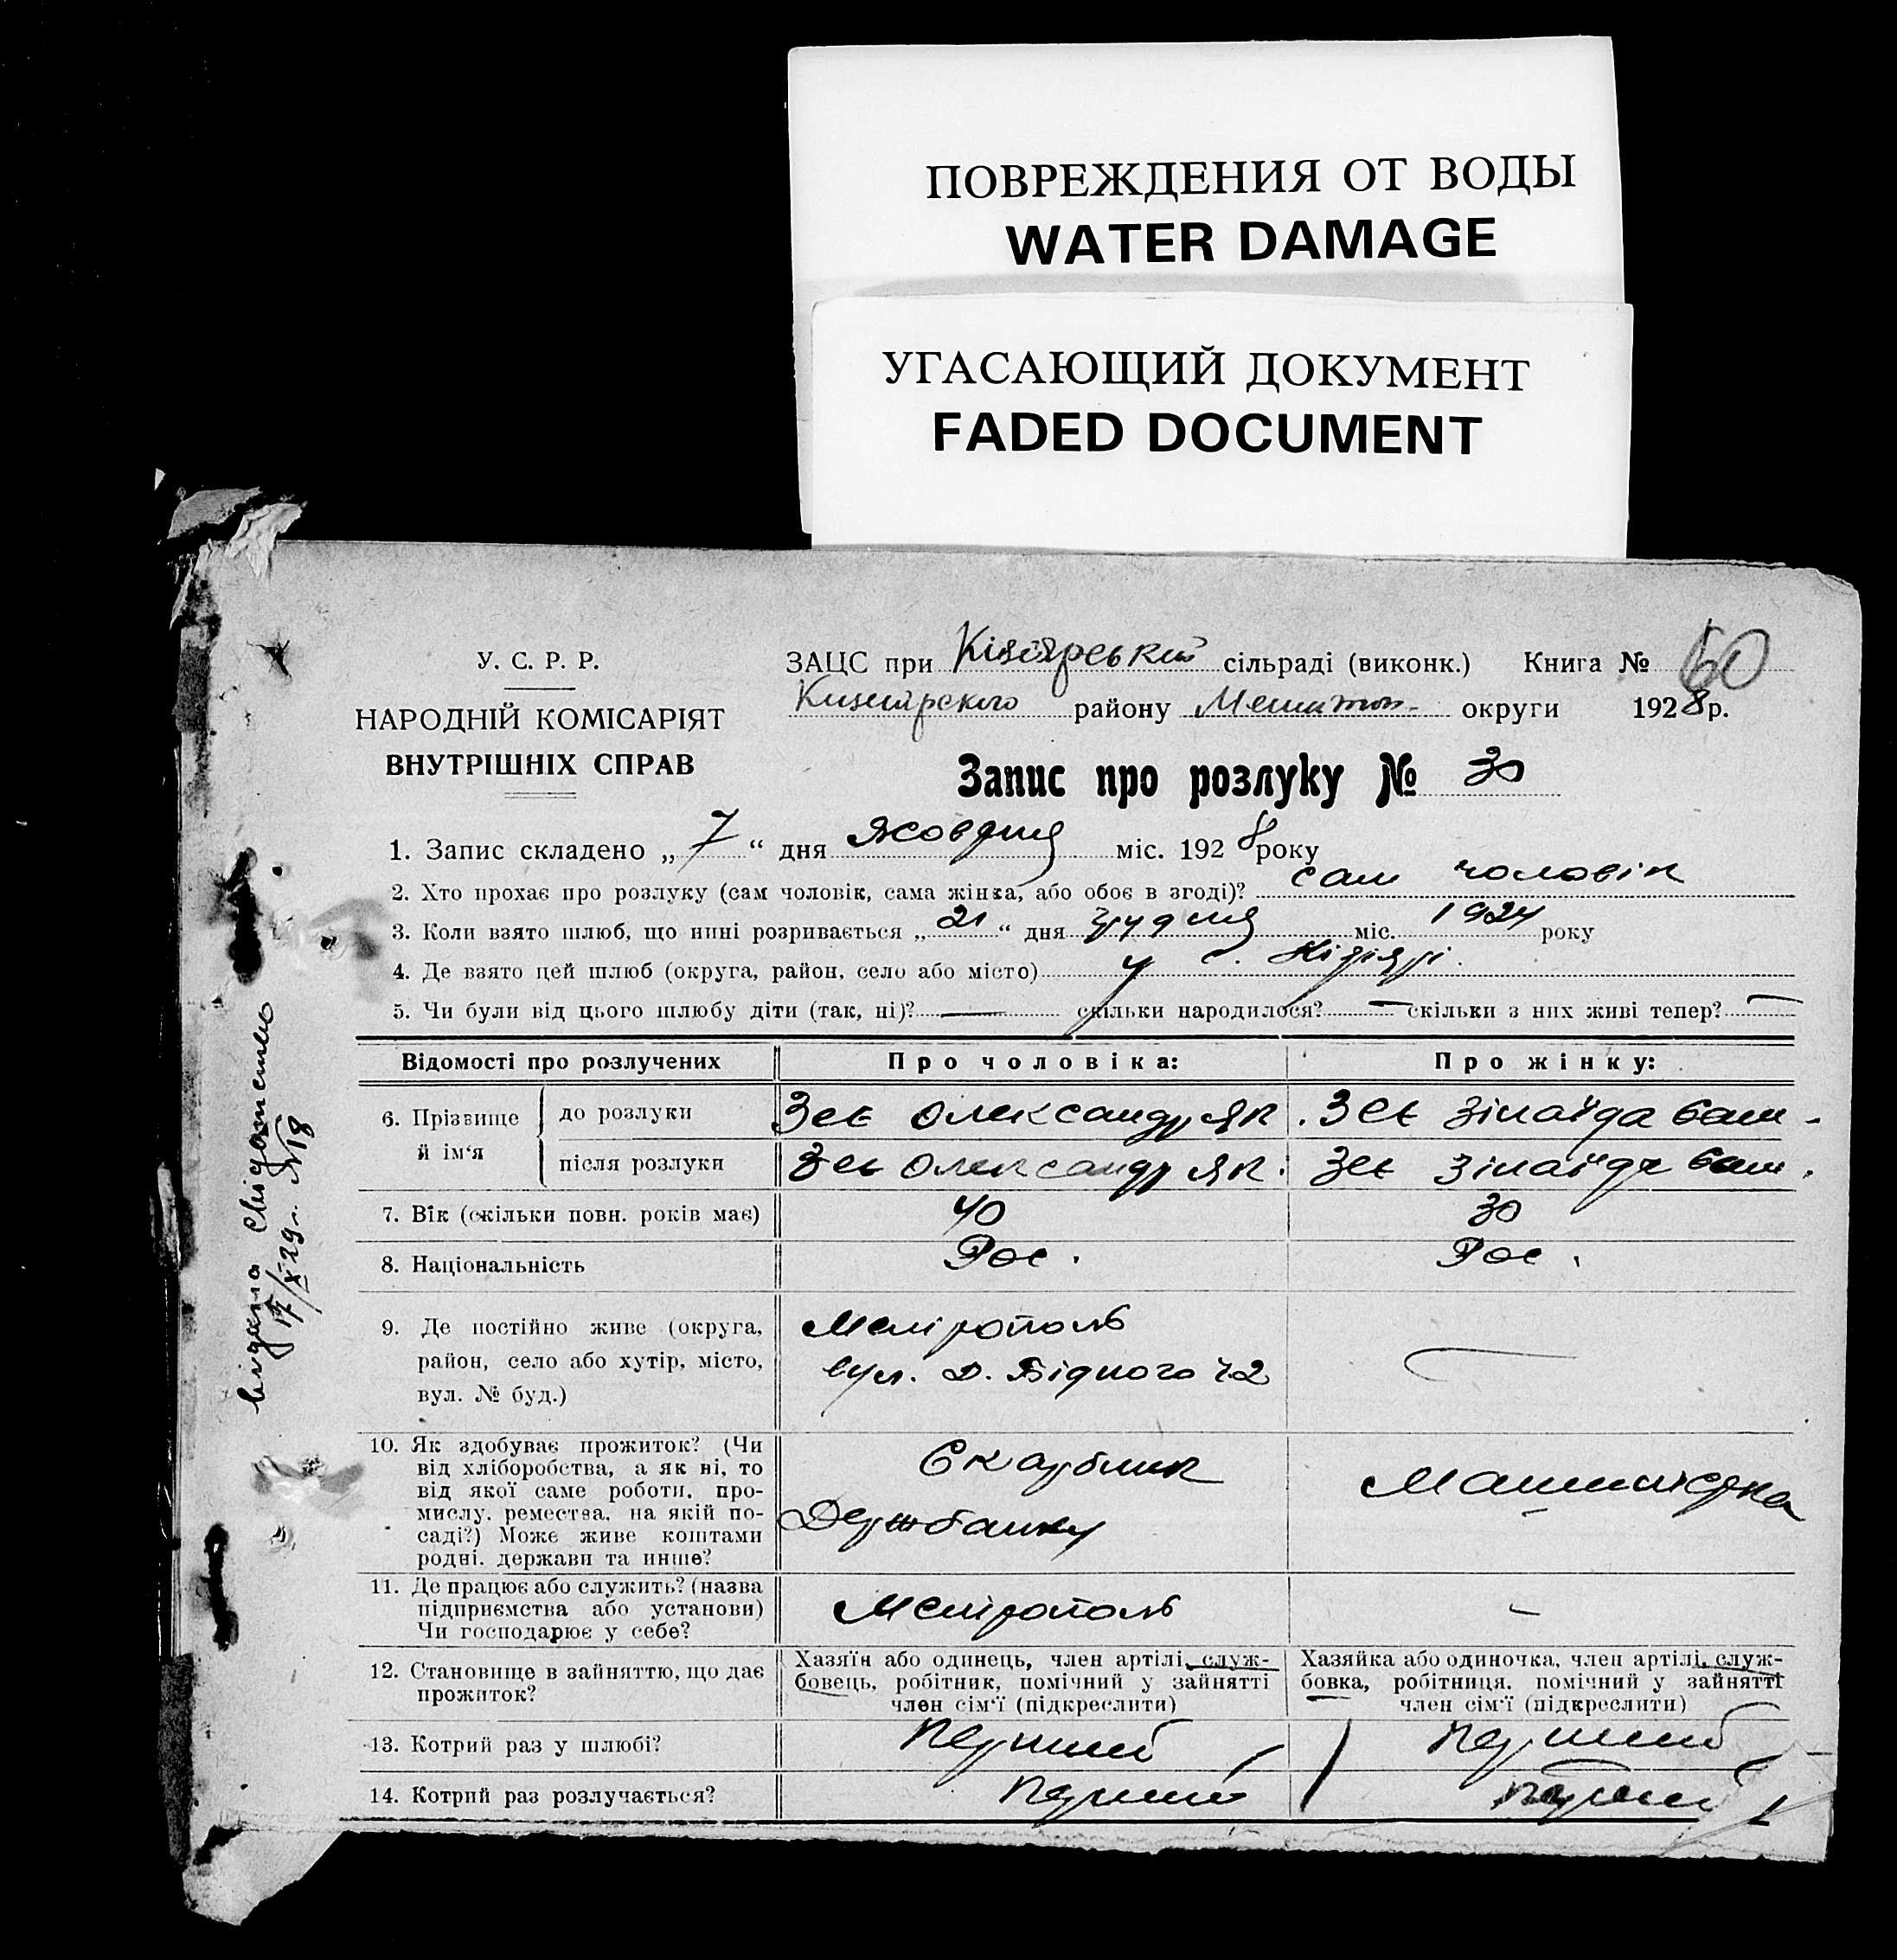 ПОВРЕЖДЕНИЯ ОТ ВОДЫ
WATER DAMAGE
УГАСАЮЩИЙ ДОКУМЕНТ
FADED DOCUMENT
У. С. Р. Р.
НАРОДНІЙ КОМІСАРІЯТ
ВНУТРІШНІХ СПРАВ
ЗАЦС при Кізіярській сільраді (виконк.) Книга № 60
Кизиярского району Мелитоп. округи 1928 р.
Запис про розлуку № 30
1. Запис складено „7“ дня жовтня міс. 1928 року
2. Хто прохає про розлуку (сам чоловік, сама жінка, або обоє в згоді)? сам чоловік
3. Коли взято шлюб, що нині розривається „21“ дня грудня міс. 1924 року
4. Де взято цей шлюб (округа, район, село або місто) у с. Кізіярі.
5. Чи були від цього шлюбу діти (так, ні)? — скільки народилося? — скільки з них живі тепер? —
Відомості про розлучених Про чоловіка: Про жінку:
6. Прізвище й ім‘я до розлуки Зек Олександр Як. Зек Зінаїда
після розлуки Зек Олександр Як. Зек Зінаїда
7. Вік (скільки повн. років має) 40 30
8. Національність Рос. Рос.
9. Де постійно живе (округа,
район, село або хутір, місто,
вул. № буд.)
Мелітополь
вул. Д. Бідного 42
—
10. Як здобуває прожиток? (Чи
від хліборобства, а як ні, то
від якої саме роботи, про-
мислу, ремества, на якій по-
саді?) Може живе коштами
родні. держави та инше?
Скарбник
Держбанку
Машиністка
11. Де працює або служить? (назва
підприємства або установи)
Чи господарює у себе?
Мелітополь
—
12. Становище в зайняттю, що дає
прожиток?
Хазяїн або одинець, член артілі, служ-
бовець, робітник, помічний у зайнятті
член сім‘ї (підкреслити)
Хазяйка або одиночка, член артілі, служ-
бовка, робітниця, помічний у зайнятті
член сім‘ї (підкреслити)
13. Котрий раз у шлюбі? перший перший
14. Котрий раз розлучається? перший перший
видана свідоцтво
17/X 29 р. № 18